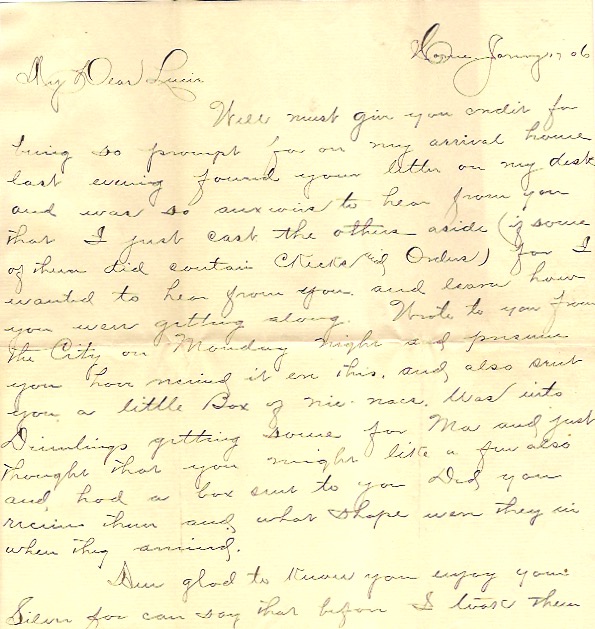 Home Janry 17 06
My Dear Lucie
Well must give you credit for
being so prompt for on my arrival home
last evening found your letter on my desk
and was so anxious to hear from you
that I just cast the others aside (if some
of them did contain Checks and Orders) for I
wanted to hear from you and learn how
you were getting along. Wrote to you from
the City on Monday night and presume
you have received it ere this. and also sent
you a little Box of nic nacs. Was into
getting some for Ma and just
thought that you might like a few also
and had a box sent to you Did you
receive them and what shape were they in
when they arrived.
Am glad to know you enjoy your
Silver for can say that before I took them